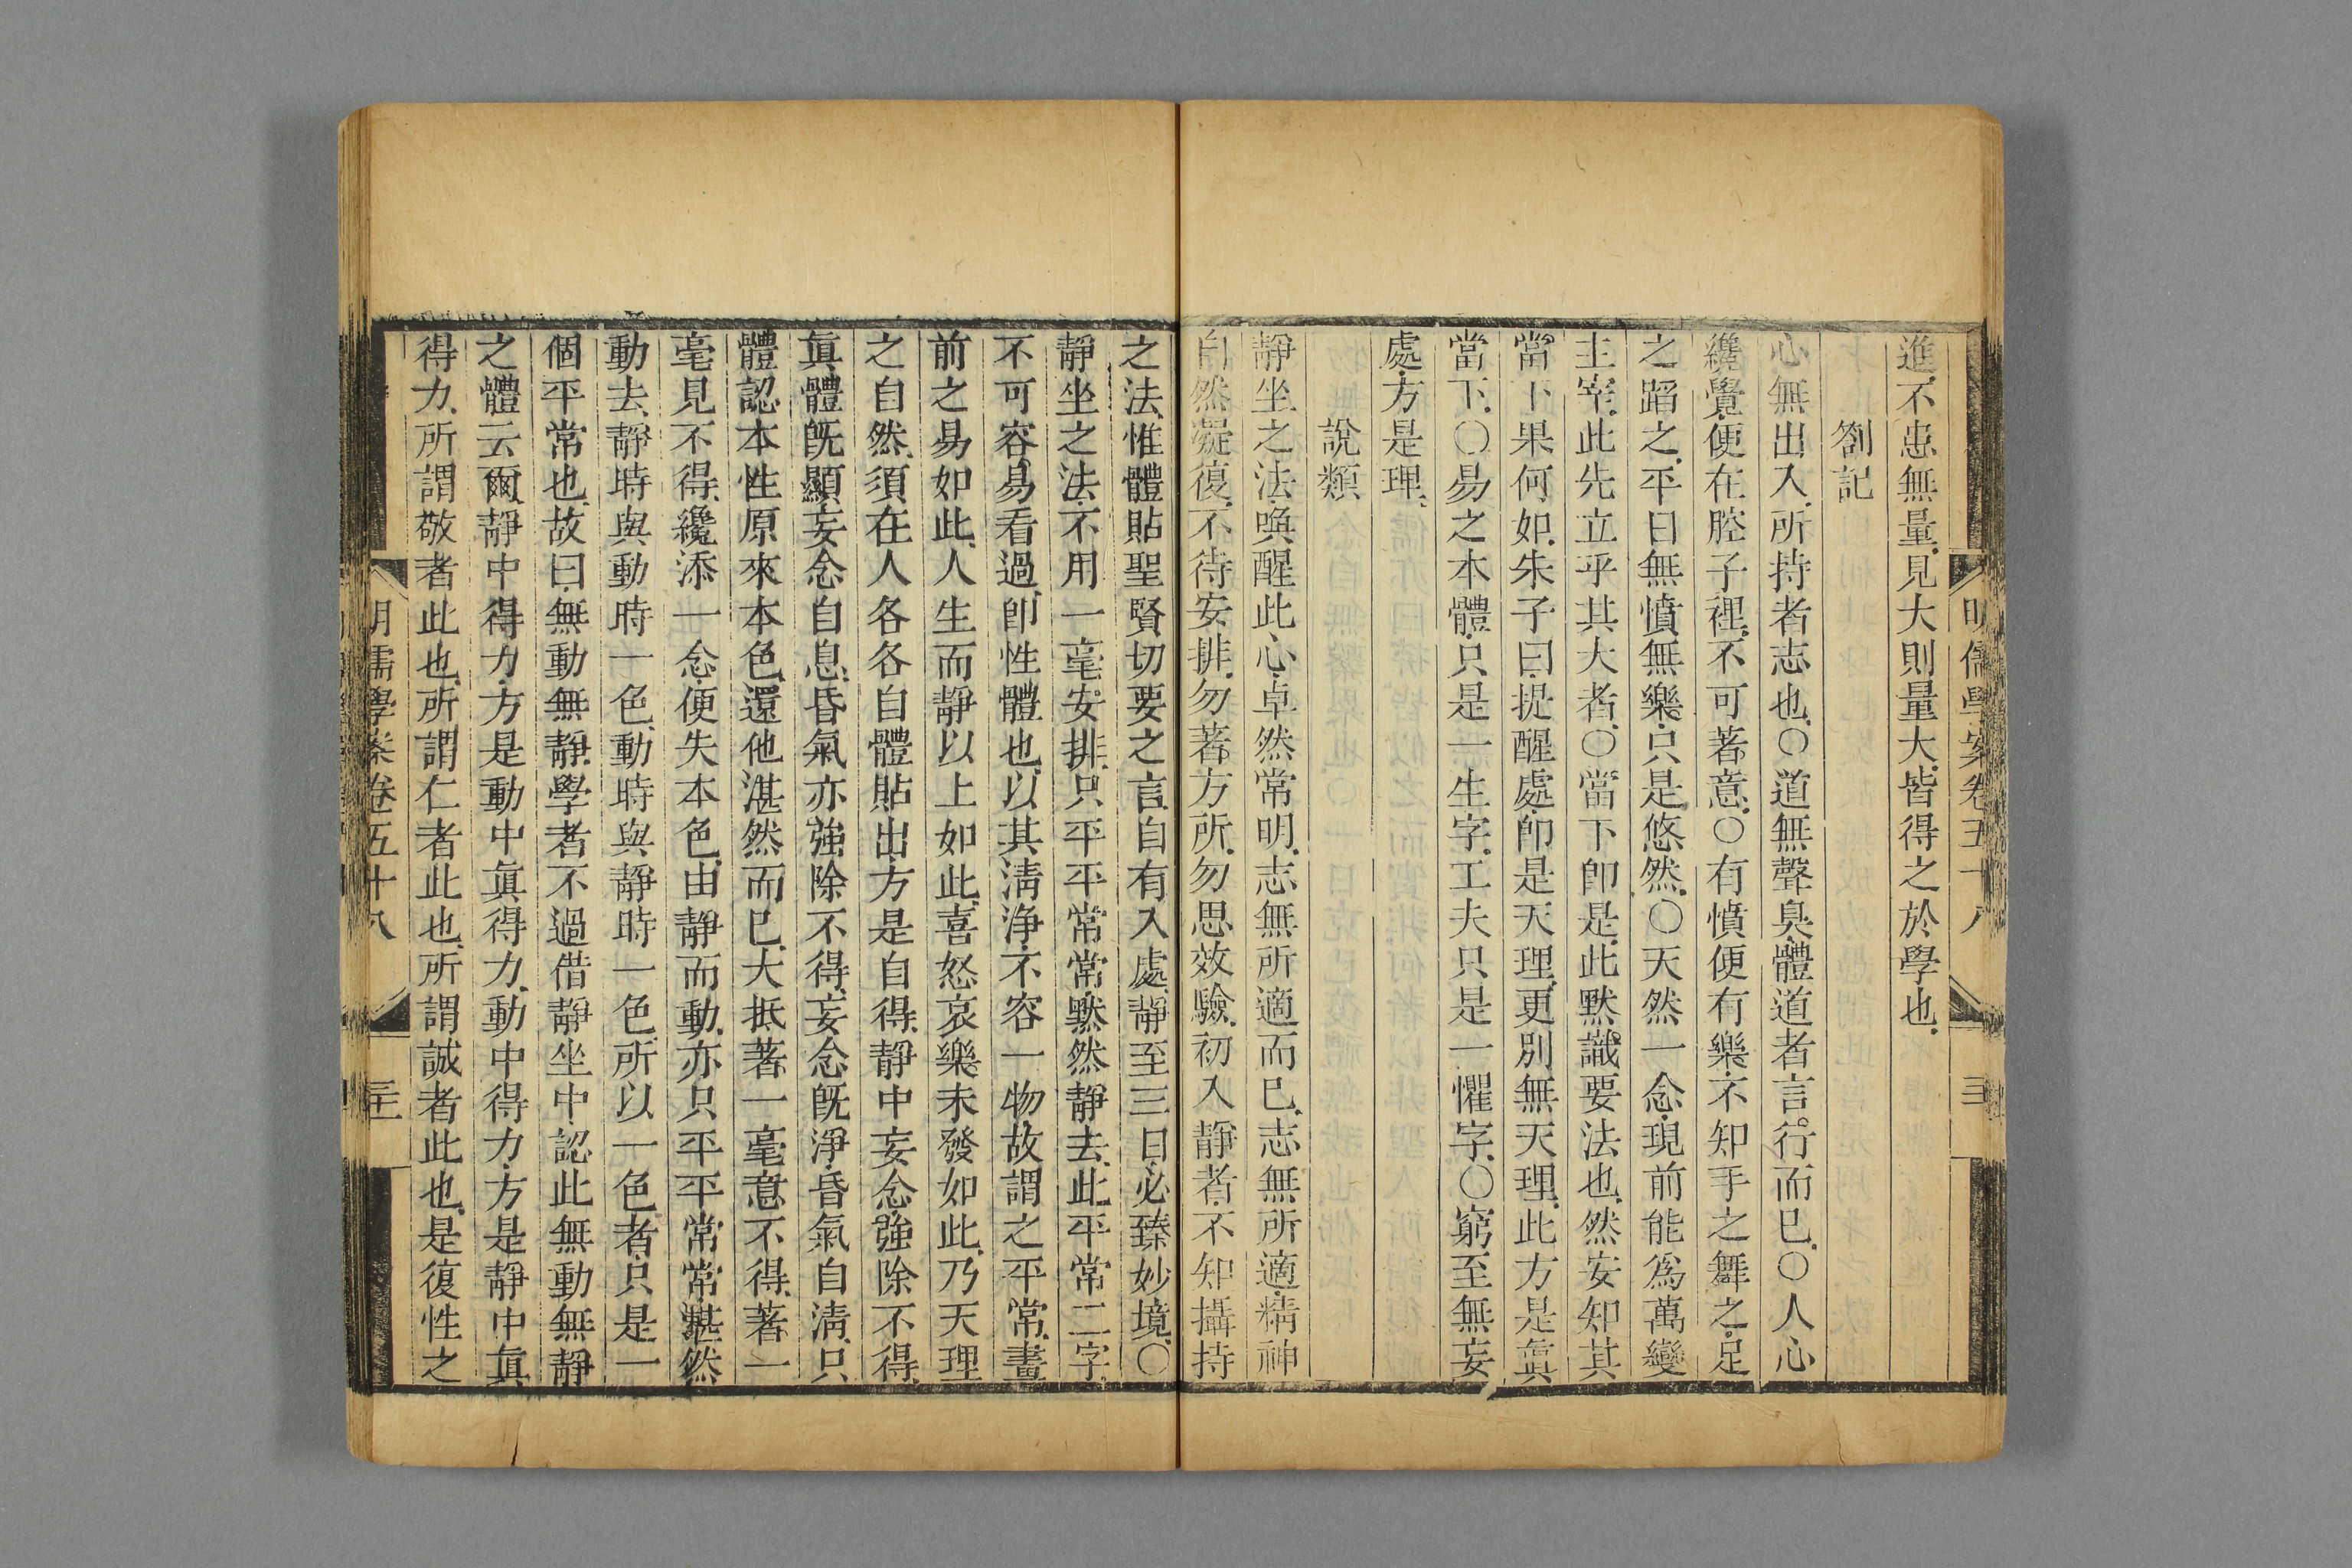 進、不患無量、見大則量大、皆得之於學也、
劄記
心無出入、所持者志也、〇道無聲臭、體道者言行而已、〇人心
纔覺、便在腔子裡、不可著意、〇有憤便有樂、不知手之舞之、足
之蹈之、平日無憤無樂、只是悠然、〇天然一念、現前能爲萬變
主宰、此先立乎其大者、〇當下卽是、此默識要法也、然安知其
當下果何如、朱子曰、提醒處、卽是天理、更別無天理、此方是眞
當下、〇易之本體、只是一生字、工夫只是一懼字、〇窮至無妄
處、方是理、
說類
靜坐之法、喚醒此心、卓然常明、志無所適而已、志無所適、精神
自然凝復、不待安排、勿著方所、勿思效驗、初入靜者、不知攝持
之法、惟體貼聖賢切要之言、自有入處、靜至三日、必臻妙境、〇
靜坐之法、不用一毫安排、只平平常常、默然靜去、此平常二字、
不可容易看過、卽性體也、以其淸淨、不容一物、故謂之平常、畫
前之易如此、人生而靜以上如此、喜怒哀樂未發如此、乃天理
之自然、須在人各各自體貼出、方是自得、靜中妄念、強除不得、
眞體旣顯、妄念自息、昏氣亦強除不得、妄念旣淨、昏氣自淸、只
體認本性原來本色、還他湛然而已、大抵著一毫意不得、著一
毫見不得、纔添一念、便失本色、由靜而動、亦只平平常常、湛然
動去、靜時與動時一色、動時與靜時一色、所以一色者、只是一
個平常也、故曰、無動無靜、學者不過借靜坐中、認此無動無靜
之體云爾、靜中得力、方是動中眞得力、動中得力、方是靜中眞
得力、所謂敬者此也、所謂仁者此也、所謂誠者此也、是復性之
明儒學案卷五十八